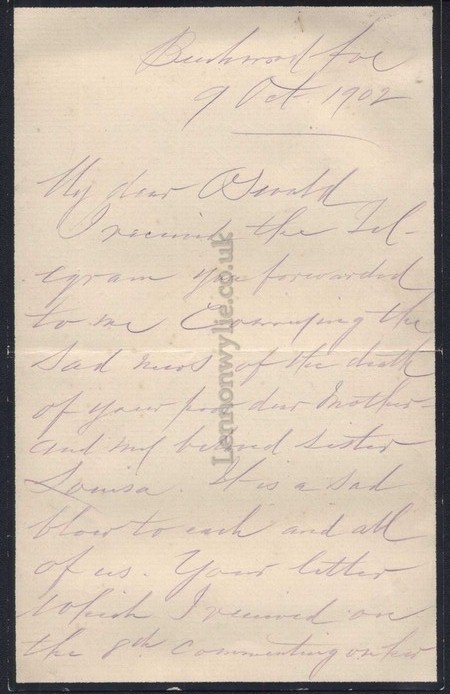 Beechwood Ave
9 Oct. 1902
My dear Oswald
I received the Tel-
egram you forwarded
to me Conveying the
Sad news of the death
of your poor dear Mother
and my beloved sister
Louisa. It is a sad
blow to each and all
of us. Your letter
which I received on
the 8th commenting on her
Lennonwylie.co.uk